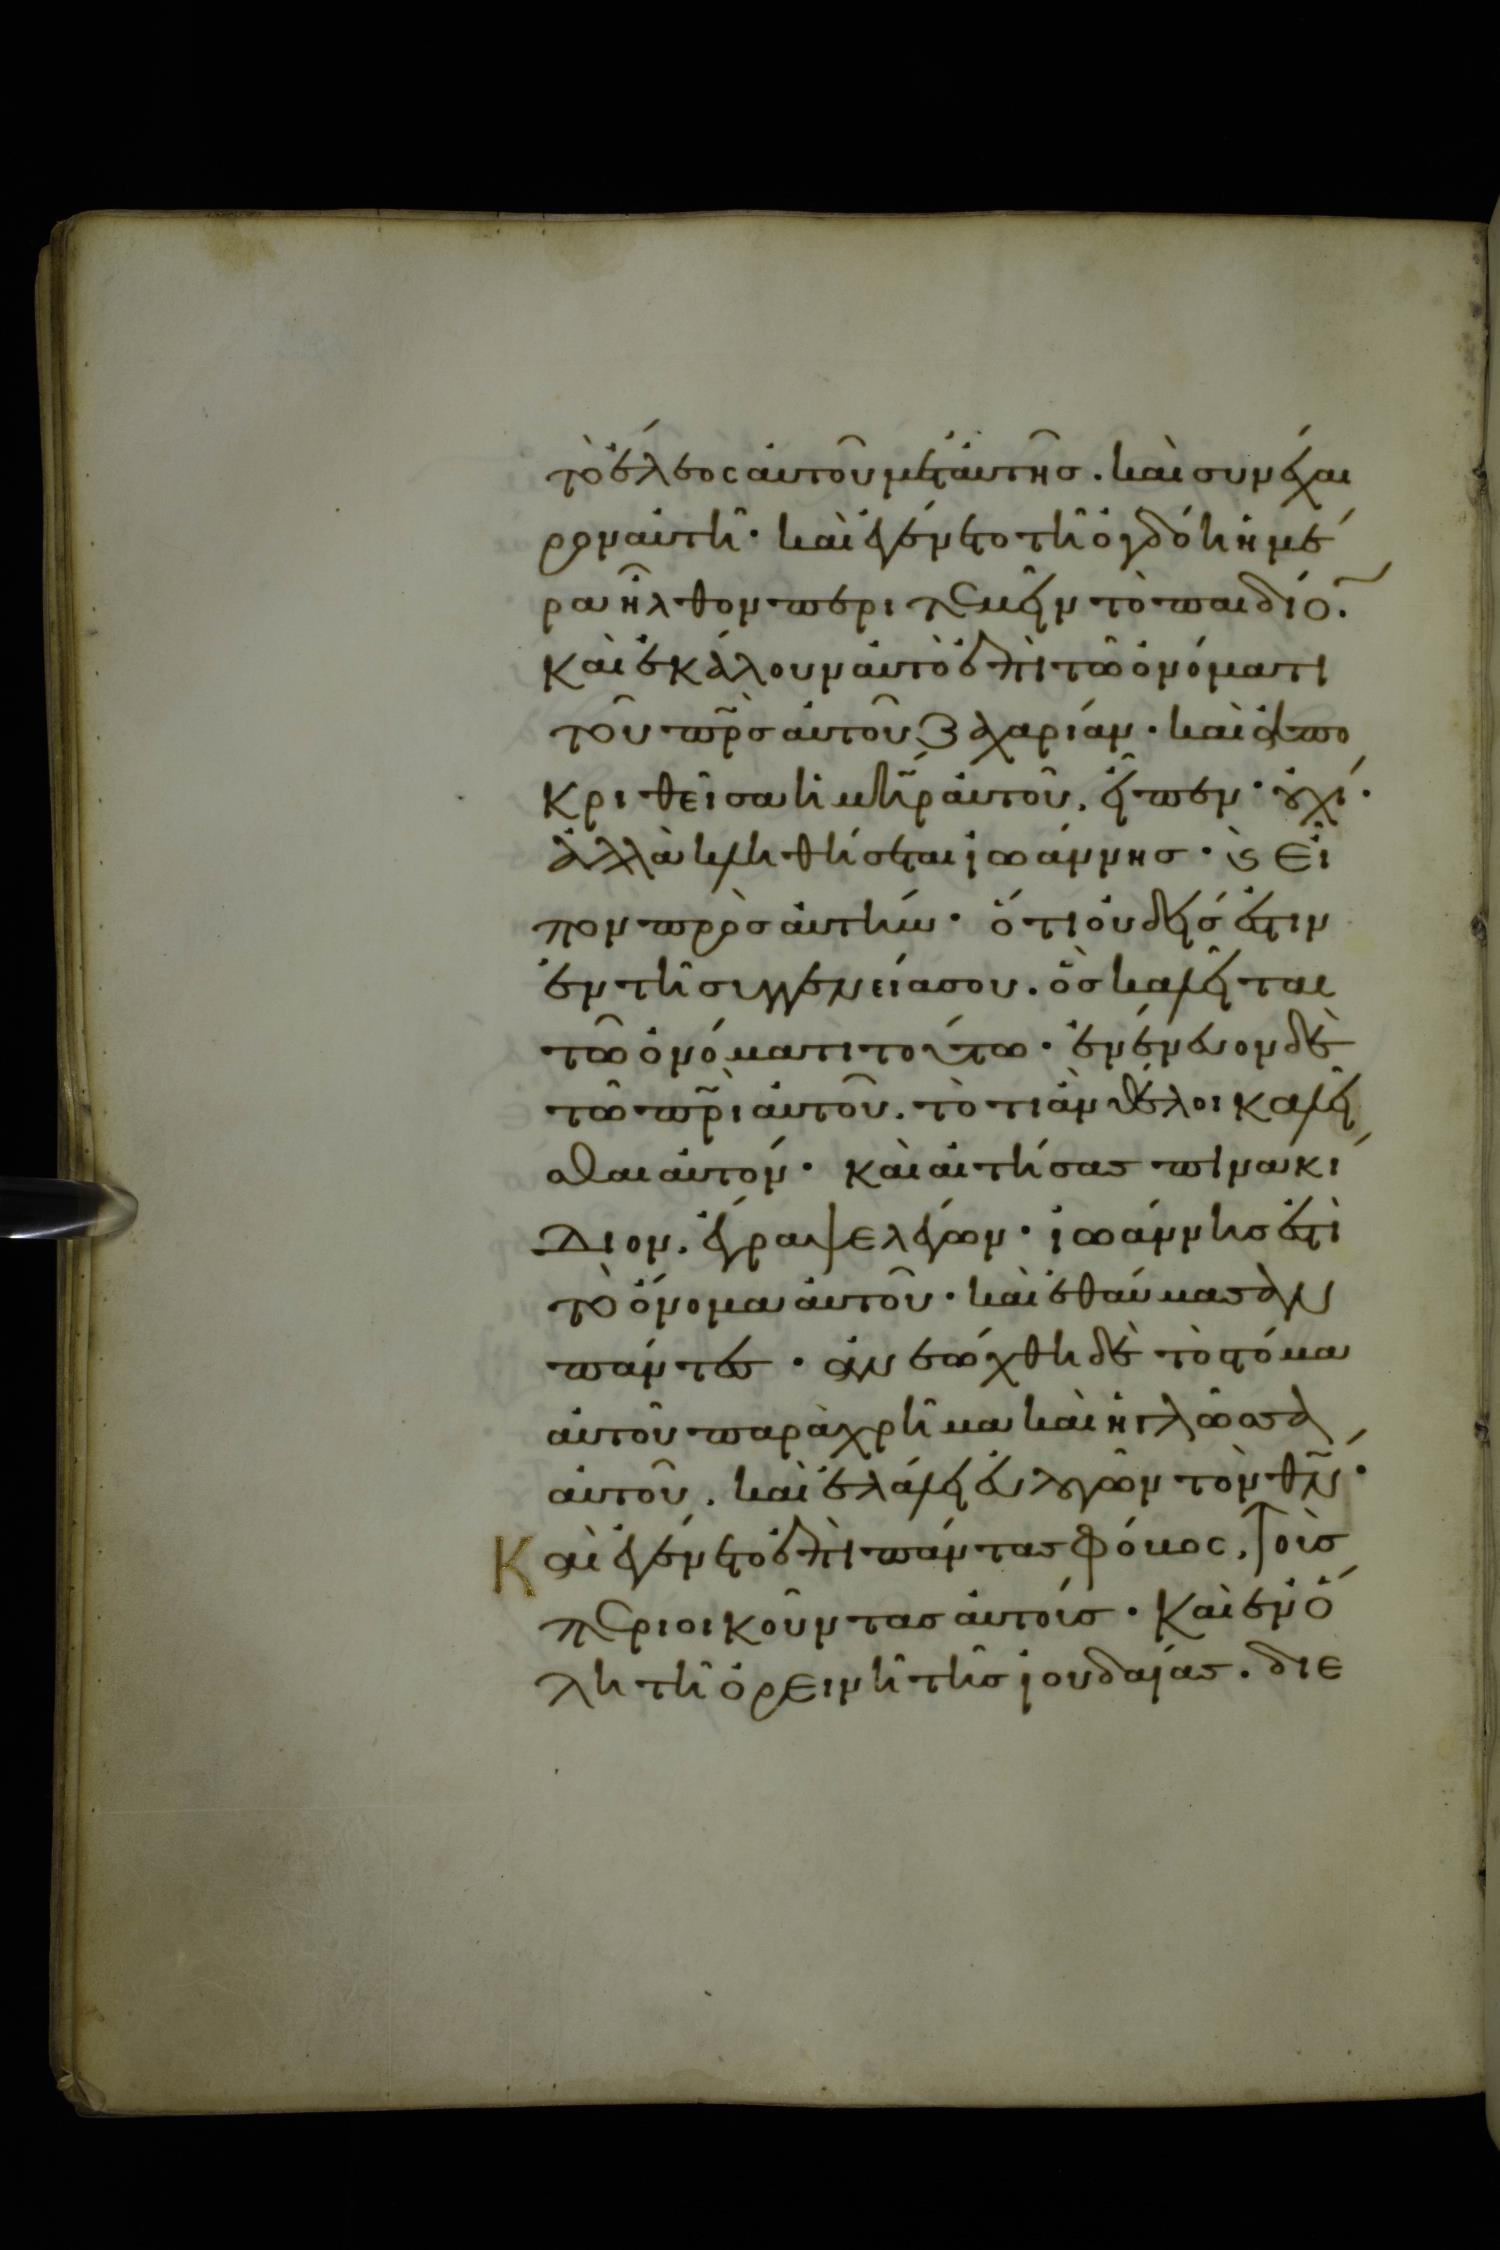 τὸ ἔλεος αὐτοῦ μετ αὐτῆσ. καὶ συνέχαι
ρον αὐτῆ· καὶ ἐγένετο τῆ ὀγδόη ἡμέ
ρα ἦλθον περιτεμεῖν τὸ παιδίο̅.
Καὶ ἐκάλουν αὐτὸ ἐπὶ τῶ ὀνόματι
τοῦ π̅ρ̅σ αὐτοῦ ζαχαρίαν· καὶ ἀπο
κριθεῖσα ἡ μ̅η̅ρ αὐτοῦ, εἶπεν· οὐχί·
ἀλλὰ κληθήσεται ἰωάννησ· ϗ εἶ
πον πρὸσ αὐτήν· ὅτι οὐδείσ ἐστιν
ἐν τῆ συγγενείασου. ὃσ καλεῖται
τῶ ὀνόματι τούτω· ἐνένευον δὲ
τῶ π̅ρ̅ι αὐτοῦ. τὸ τί ἂν θέλοι καλεῖ
σθαι αὐτόν· καὶ αἰτήσασ πινακί
διον, ἔγραψε λέγων· ἰωάννησ ἐστὶ
τὸ ὄνομα αὐτοῦ· καὶ ἐθαύμασαν
πάντεσ· ἀνεώχθη δὲ τὸ στόμα
αὐτοῦ παράχρῆμα καὶ ἡ γλῶσσα
αὐτοῦ, καὶ ἐλάλει εὐλογῶν τὸν θ̅ν̅·
Καὶ ἐγένετο ἐπὶ πάντασ φόβοσ, τοὺσ
περιοικοῦντασ αὐτοίσ· Καὶ ἐν ὅ
λη τῆ ὀρεινῆ τῆσ ἰουδαίασ. διε